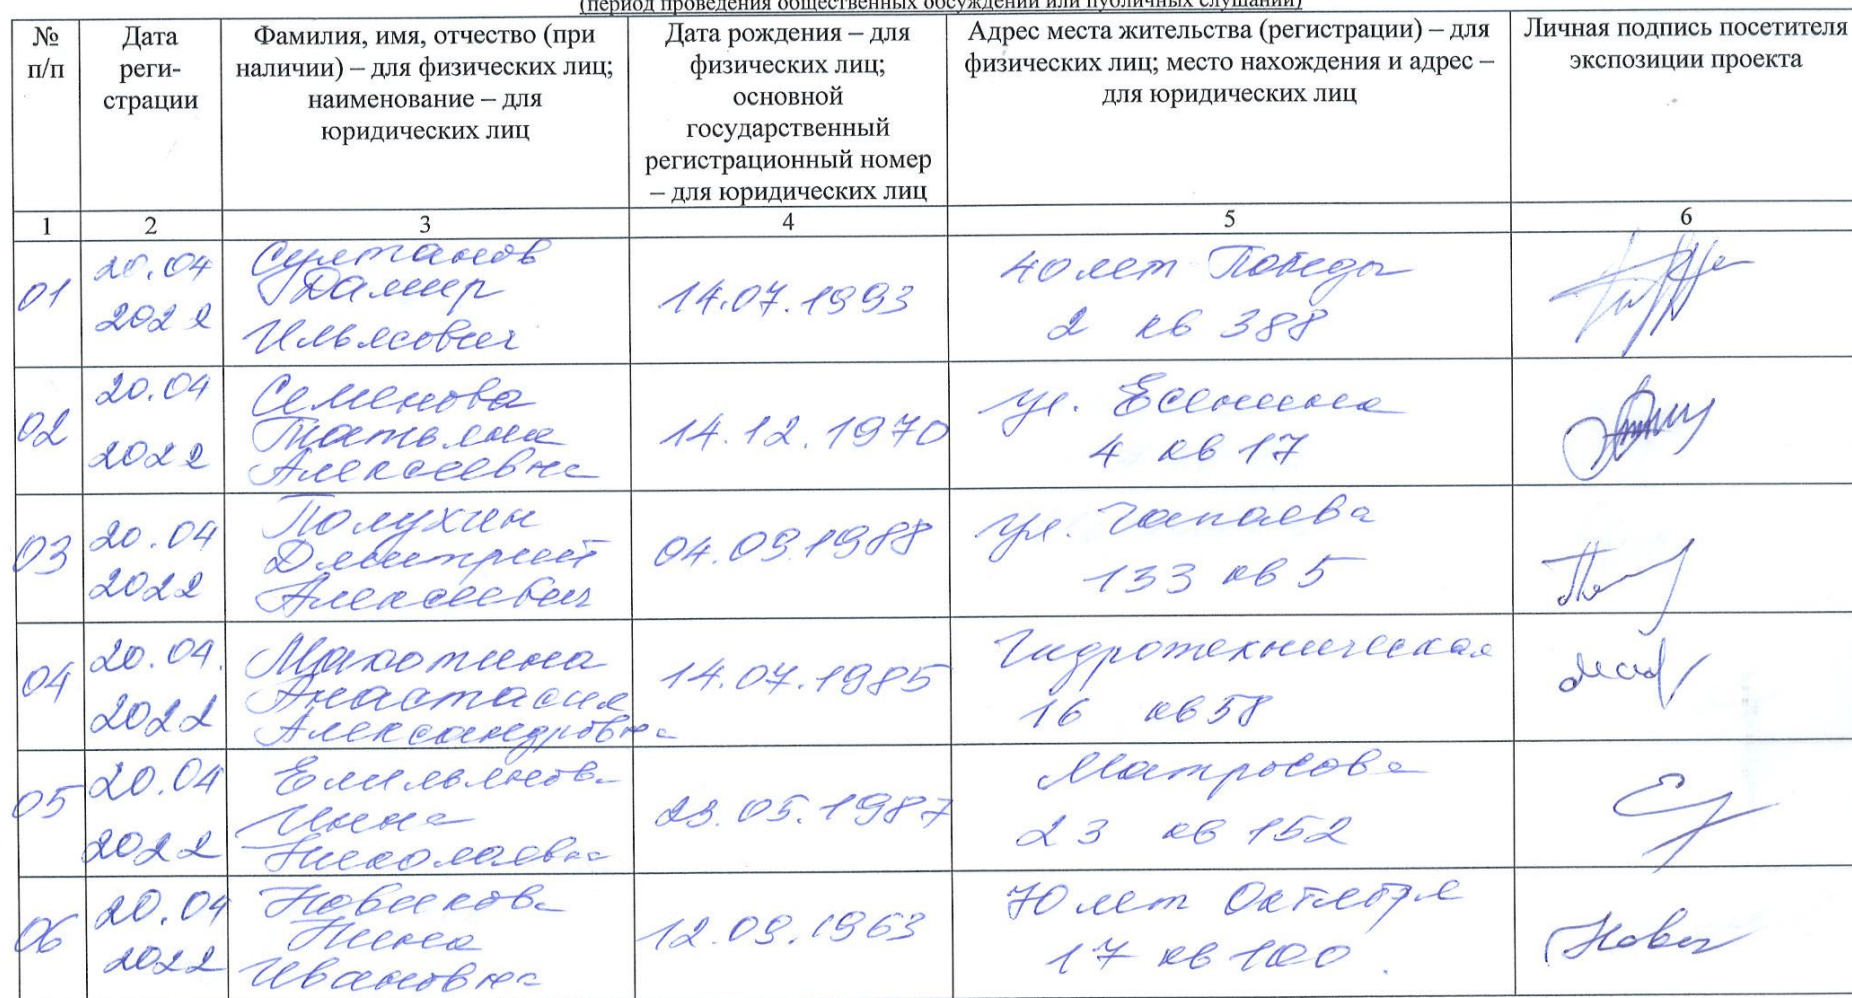 (период проведения общественных обсуждений или публичных слушаний)
№ п/п
Дата реги-
страции
Фамилия, имя, отчество (при
наличии) – для физических лиц;
наименование – для
юридических лиц
Дата рождения – для
физических лиц;
основной
государственный
регистрационный номер
– для юридических лиц
Адрес места жительства (регистрации) – для
физических лиц; место нахождения и адрес –
для юридических лиц
Личная подпись посетителя
экспозиции проекта
1 2 3 4 5 6
01
20.04
2022
Султанов
Дамир
Ильясович
14.07.1993
40 лет Победы
2 кв 388
02
20.04
2022
Семенова
Татьяна
Алексеевна
14.12.1970
ул. Есенина
4 кв 17
03
20.04
2022
Полухин
Дмитрий
Алексеевич
04.09.1988
ул. Чапаева
133 кв 5
04
20.04.
2022
Макотина
Анастасия
Александровна
14.07.1985
Гидротехническая
16 кв 58
05
20.04
2022
Емильянова
Инна
Николаевна
23.05.1987
Матросова
23 кв 152
06
20.04
2022
Новикова
Нина
Ивановна
12.09.1963
70 лет Октября
17 кв 100.